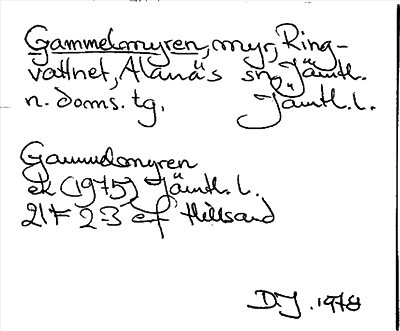 Gammelomyren, myr, Ring-
vattnet, Alanäs sn, Jämtl.
n. doms. tg. Jämtl. l.
Gammelomyren
ek (1975) Jämtl. l.
21F 2-3 ef Hillsand
DJ. 1978